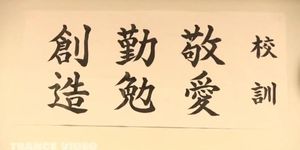 校訓
敬愛
勤勉
創造
TRANCE VIDEO